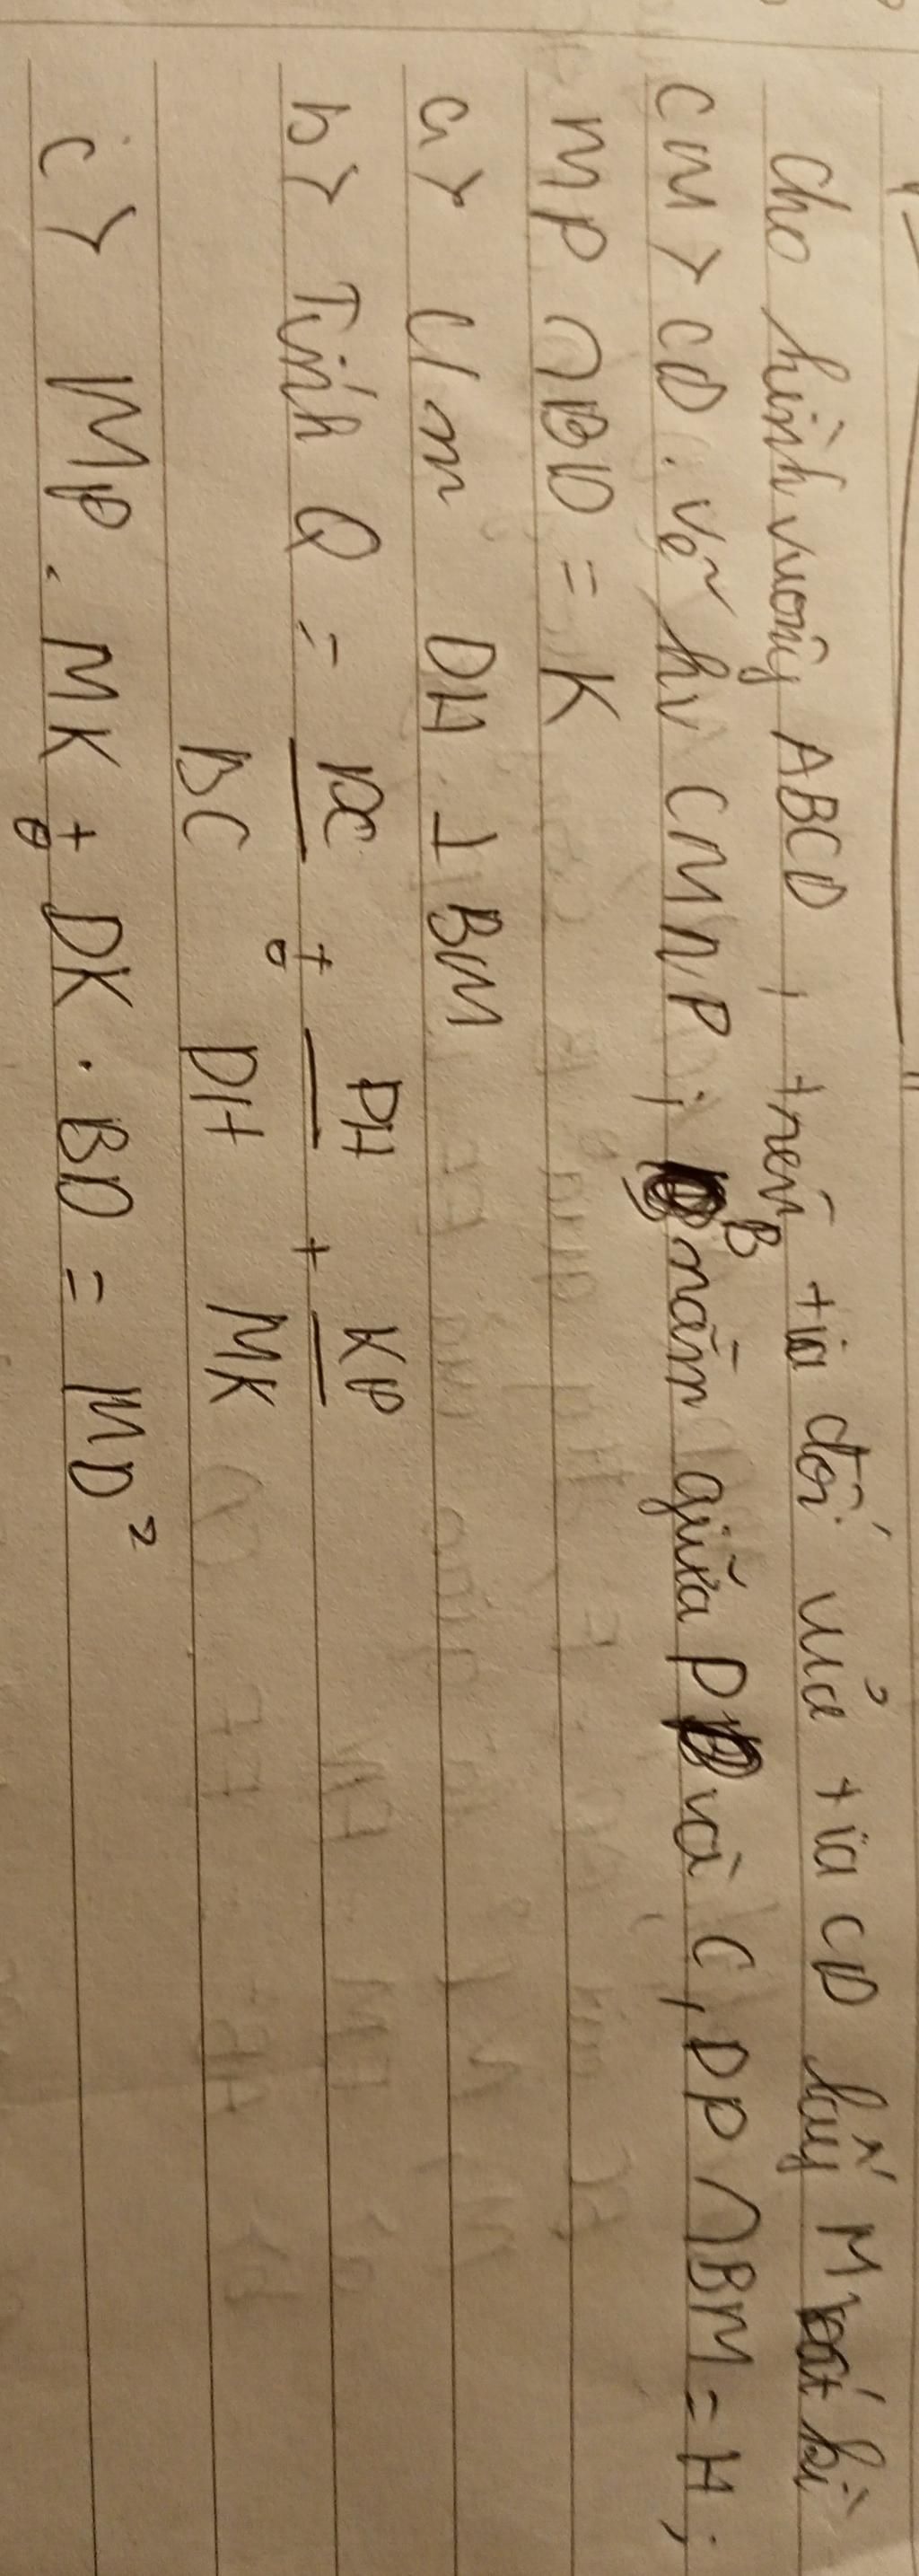 Cho hình vuông ABCD, trên tia đối của tia CD lấy M bất kì
CM > CD. vẽ hv CMNP; B nằm giữa P và C, DP ∩ BM = H;
MP ∩ BD = K
a> C/m DH ⊥ BM
b> Tính Q = PC/BC + PH/DH + KP/MK
c> MP . MK + DK . BD = MD²